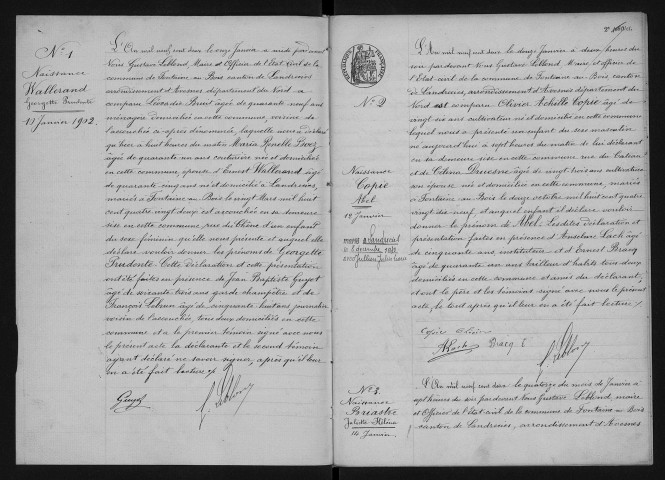 N° 1
Naissance
Wallerand
Georgette Prudente
11 Janvier 1902
L'An mil neuf cent deux le onze Janvier à midi par devant
Nous Gustave Leblond, Maire et Officier de l'Etat civil de la
commune de Fontaine au Bois canton de Landrecies
arrondissement d'Avesnes département du Nord a
comparu Léocadie âgée de quarante neuf ans
ménagère domiciliée en cette commune, voisine de
l'accouchée ci-après dénommée, laquelle nous a déclaré
qu'hier à huit heures du matin Maria
âgée de quarante un ans couturière née et domiciliée
en cette commune, épouse d'Ernest Wallerand âgé de
quarante cinq ans né et domicilié à Landrecies,
mariés à Fontaine au Bois le vingt Mars mil huit
cent quatre vingt deux est accouchée en sa demeure
sise en cette commune rue du Chêne d'un enfant
du sexe féminin qu'elle nous présente et auquel elle
déclare vouloir donner les prénoms de Georgette
Prudente. Cette déclaration et cette présentation
ont été faites en présence de Jean Baptiste Guyot
âgé de soixante trois ans garde champêtre et de
François Lebrun âgé de cinquante huit ans journalier
voisin de l'accouchée, tous deux domiciliés en cette
commune et a le premier témoin signé avec nous
le présent acte la déclarante et le second témoin
ayant déclaré ne savoir signer, après qu'il leur
en a été fait lecture
Guyot
G. Leblond
N° 2
Naissance
Copie
Abel
12 Janvier
L'An mil neuf cent deux le douze Janvier à deux heures du
soir pardevant Nous Gustave Leblond Maire et officier de
l'Etat civil de la commune de Fontaine au Bois, canton
de Landrecies, arrondissement d'Avesnes département du
Nord est comparu Olivier Achille Copie âgé de
vingt six ans cultivateur né et domicilié en cette commune
lequel nous a présenté un enfant du sexe masculin
né aujourd'hui à sept heures du matin de lui déclarant
en sa demeure sise en cette commune rue du Cateau
et de Célina Druesne âgée de vingt trois ans cultivatrice
son épouse née et domiciliée en cette commune, mariés
à Fontaine au Bois le douze octobre mil huit cent quatre
vingt dix neuf, et auquel enfant il déclare vouloir
donner le prénom de Abel. Lesdites déclaration et
présentation faites en présence d'Anselme Lach âgé
de cinquante ans instituteur et d'Ernest Bracq
âgé de quarante un ans tailleur d'habits tous deux
domiciliés en cette commune et amis du déclarant,
et ont le père et les témoins signé avec nous le présent
acte, le tout après qu'il leur en a été fait lecture
Copie Olivier
ALach Bracq E
G. Leblond
N° 3
Naissance
Juliette Hélène
14 Janvier
L'An mil neuf cent deux le quatorze du mois de Janvier à
sept heures du soir pardevant Nous Gustave Leblond, maire
et Officier de l'état-civil de la commune de Fontaine au Bois
canton de Landrecies, arrondissement d'Avesnes